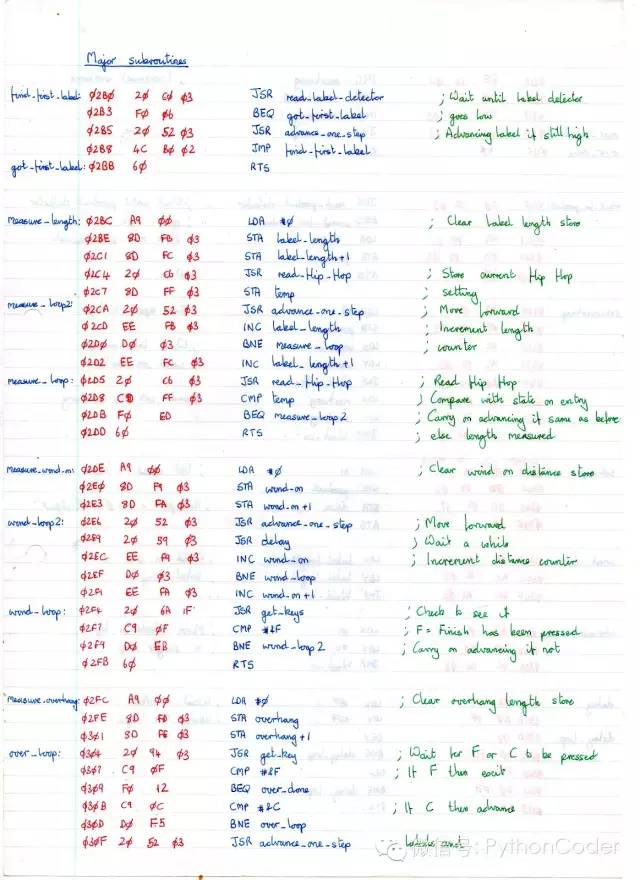 Major subroutines
find_first_label: Ø2BØ 2Ø CØ Ø3 JSR read_label_detector ; Wait until label detector
Ø2B3 FØ Ø6 BEQ got_first_label ; goes low
Ø2B5 2Ø 52 Ø3 JSR advance_one_step ; Advancing label if still high
Ø2B8 4C BØ Ø2 JMP find_first_label
got_first_label: Ø2BB 6Ø RTS
measure_length: Ø2BC A9 ØØ LDA #Ø ; Clear label length store
Ø2BE 8D FB Ø3 STA label_length
Ø2C1 8D FC Ø3 STA label_length+1
Ø2C4 2Ø C6 Ø3 JSR read_Hip_Hop ; Store current Hip Hop
Ø2C7 8D FF Ø3 STA temp ; setting
measure_loop2: Ø2CA 2Ø 52 Ø3 JSR advance_one_step ; Move forward
Ø2CD EE FB Ø3 INC label_length ; Increment length
Ø2DØ DØ Ø3 BNE measure_loop ; counter
Ø2D2 EE FC Ø3 INC label_length+1
measure_loop: Ø2D5 2Ø C6 Ø3 JSR read_Hip_Hop ; Read Hip Hop
Ø2D8 CD FF Ø3 CMP temp ; Compare with state on entry
Ø2DB FØ ED BEQ measure_loop2 ; Carry on advancing if same as before
Ø2DD 6Ø RTS ; else length measured
measure_wind_on: Ø2DE A9 ØØ LDA #Ø ; Clear wind on distance store
Ø2EØ 8D F9 Ø3 STA wind_on
Ø2E3 8D FA Ø3 STA wind_on+1
wind_loop2: Ø2E6 2Ø 52 Ø3 JSR advance_one_step ; Move forward
Ø2E9 2Ø 59 Ø3 JSR delay ; Wait a while
Ø2EC EE F9 Ø3 INC wind_on ; Increment distance counter
Ø2EF DØ Ø3 BNE wind_loop
Ø2F1 EE FA Ø3 INC wind_on+1
wind_loop: Ø2F4 2Ø 6A 1F JSR get_keys ; Check to see if
Ø2F7 C9 ØF CMP #&F ; F = Finish has been pressed
Ø2F9 DØ EB BNE wind_loop2 ; Carry on advancing if not
Ø2FB 6Ø RTS
measure_overhang: Ø2FC A9 ØØ LDA #Ø ; Clear overhang length store
Ø2FE 8D FD Ø3 STA overhang
Ø3Ø1 8D FE Ø3 STA overhang+1
over_loop: Ø3Ø4 2Ø 94 Ø3 JSR get_key ; Wait for F or C to be pressed
Ø3Ø7 C9 ØF CMP #&F ; If F then exit
Ø3Ø9 FØ 12 BEQ over_done
Ø3ØB C9 ØC CMP #&C ; If C then advance
Ø3ØD DØ F5 BNE over_loop
Ø3ØF 2Ø 52 Ø3 JSR advance_one_step
微信号: PythonCoder